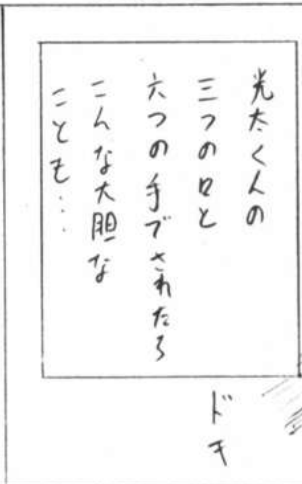 光太くんの
三つの口と
六つの手でされたら
こんな大胆な
ことも…
ドキ